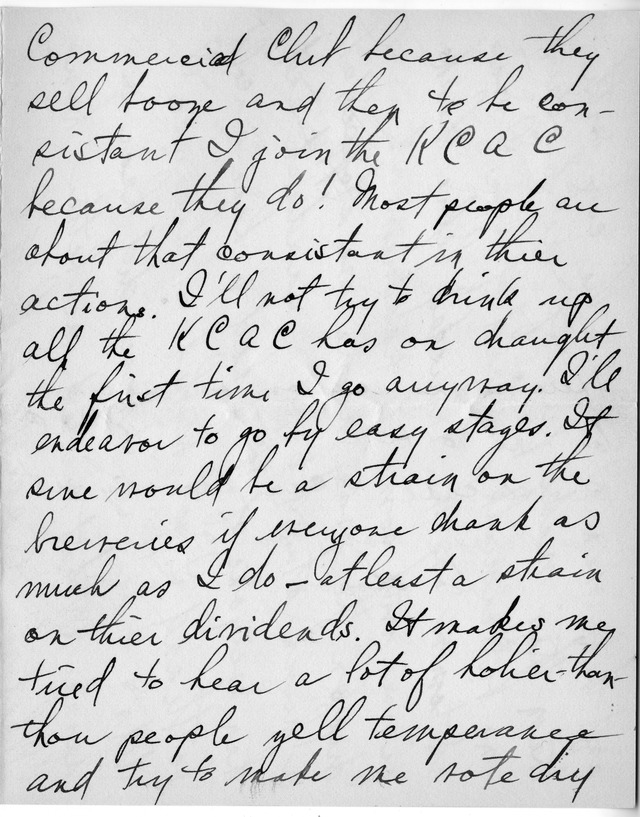 Commercial Club because they
sell booze and then to be con-
sistant I join the K C A C
because they do! Most people are
about that consistant in thier
actions. I'll not try to drink up
all the K C A C has on draught
the first time I go anyway. I'll
endeavor to go by easy stages. It
sure would be a strain on the
breweries if everyone drank as
much as I do - at least a strain
on thier dividends. It makes me
tired to hear a lot of holier-than-
thou people yell temperance
and try to make me vote dry